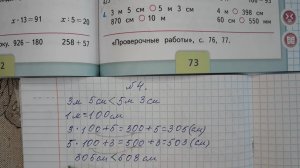 x · 13 = 91 x : 5 = 20
926 - 180 258 + 57
3 м 5 см ○ 5 м 3 см 4 м ○ 398 см
870 см ○ 10 м 60 см ○ 550 мм
«Проверочные работы», с. 76, 77.
73
№4.
3м 5см < 5м 3см
1м = 100см
3 · 100 + 5 = 300 + 5 = 305 (см)
5 · 100 + 3 = 500 + 3 = 503 (см)
305см < 503 см